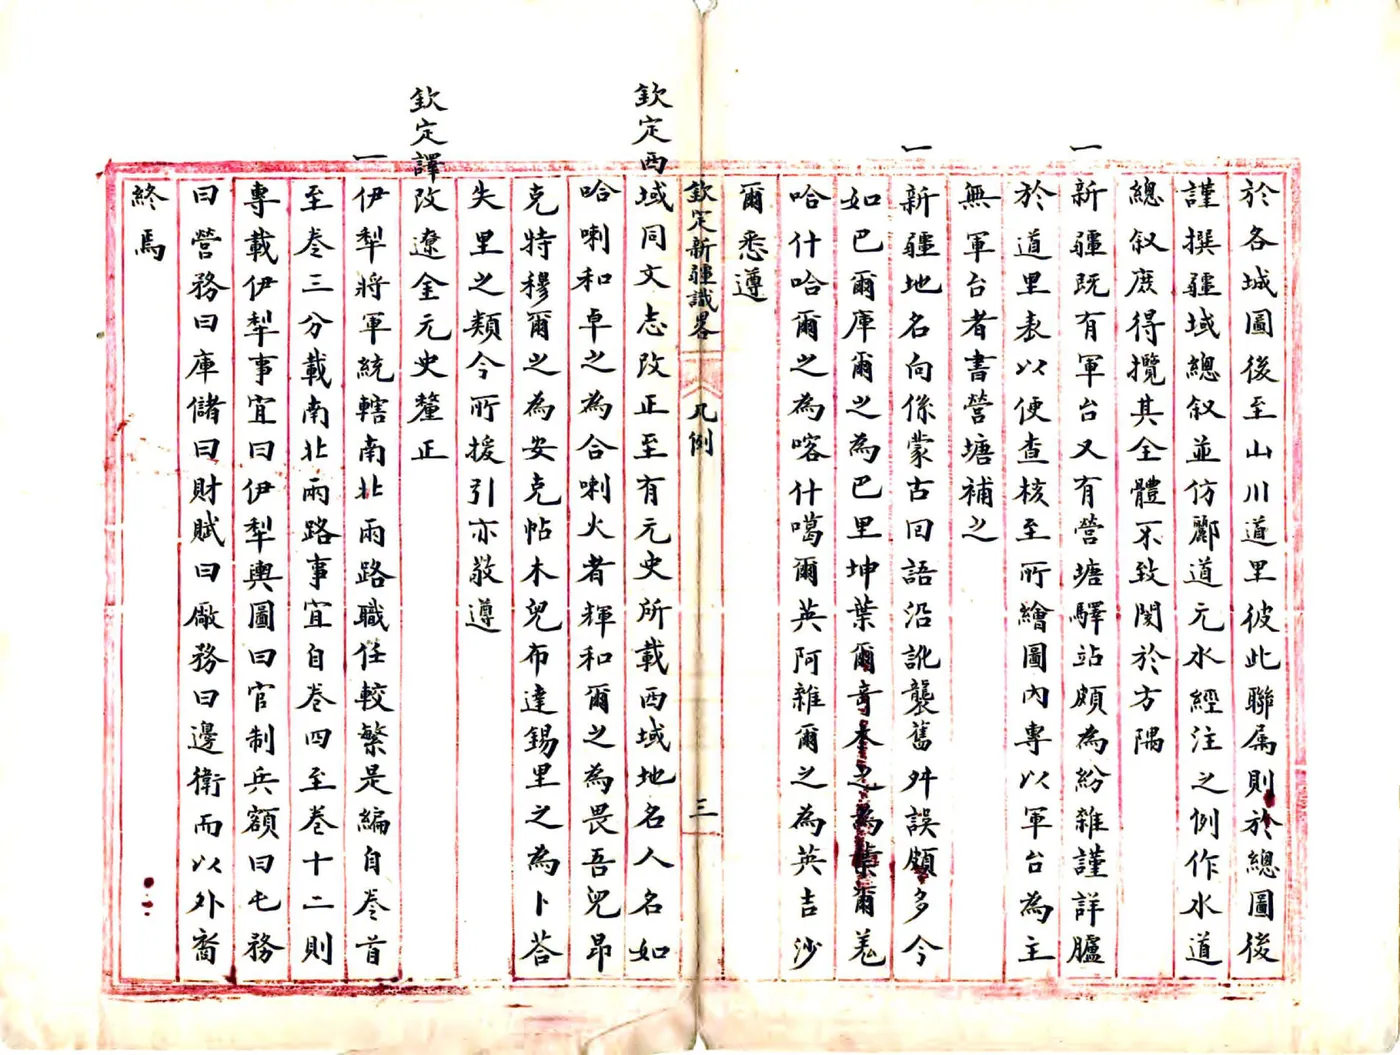 於各城圖後至山川道里彼此聯属則於總圖後
謹撰疆域總叙並仿酈道元水經注之例作水道
總叙庶得攬其全體不致閡於方隅
一
新疆既有軍台又有營塘驛站頗為紛雜謹詳臚
於道里表以便查核至所繪圖內專以軍台為主
無軍台者書營塘補之
一
新疆地名向係蒙古回語沿訛襲舊舛誤頗多今
如巴爾庫爾之為巴里坤葉爾奇木之為葉爾羌
哈什哈爾之為喀什噶爾英阿雜爾之為英吉沙
爾悉遵
欽定新疆識畧 凡例 三
欽定西域同文志改正至有元史所載西域地名人名如
哈喇和卓之為合喇火者輝和爾之為畏吾兒昂
克特穆爾之為安克帖木兒布達錫里之為卜荅
失里之類今所援引亦敬遵
欽定譯改遼金元史釐正
一
伊犁將軍統轄南北兩路職任較繁是編自卷首
至卷三分載南北兩路事宜自卷四至卷十二則
專載伊犁事宜曰伊犁輿圖曰官制兵額曰屯務
曰營務曰庫儲曰財賦曰廠務曰邊衛而以外裔
終焉